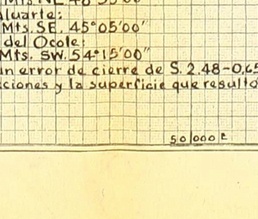 Mts NE 48°55'00"
aluarte:
Mts. SE. 45°05'00'
del Ocole:
Mts. SW. 54°15'00"
un error de cierre de S. 2.48-0.65
ciones y la superficie que resultó
50000 E